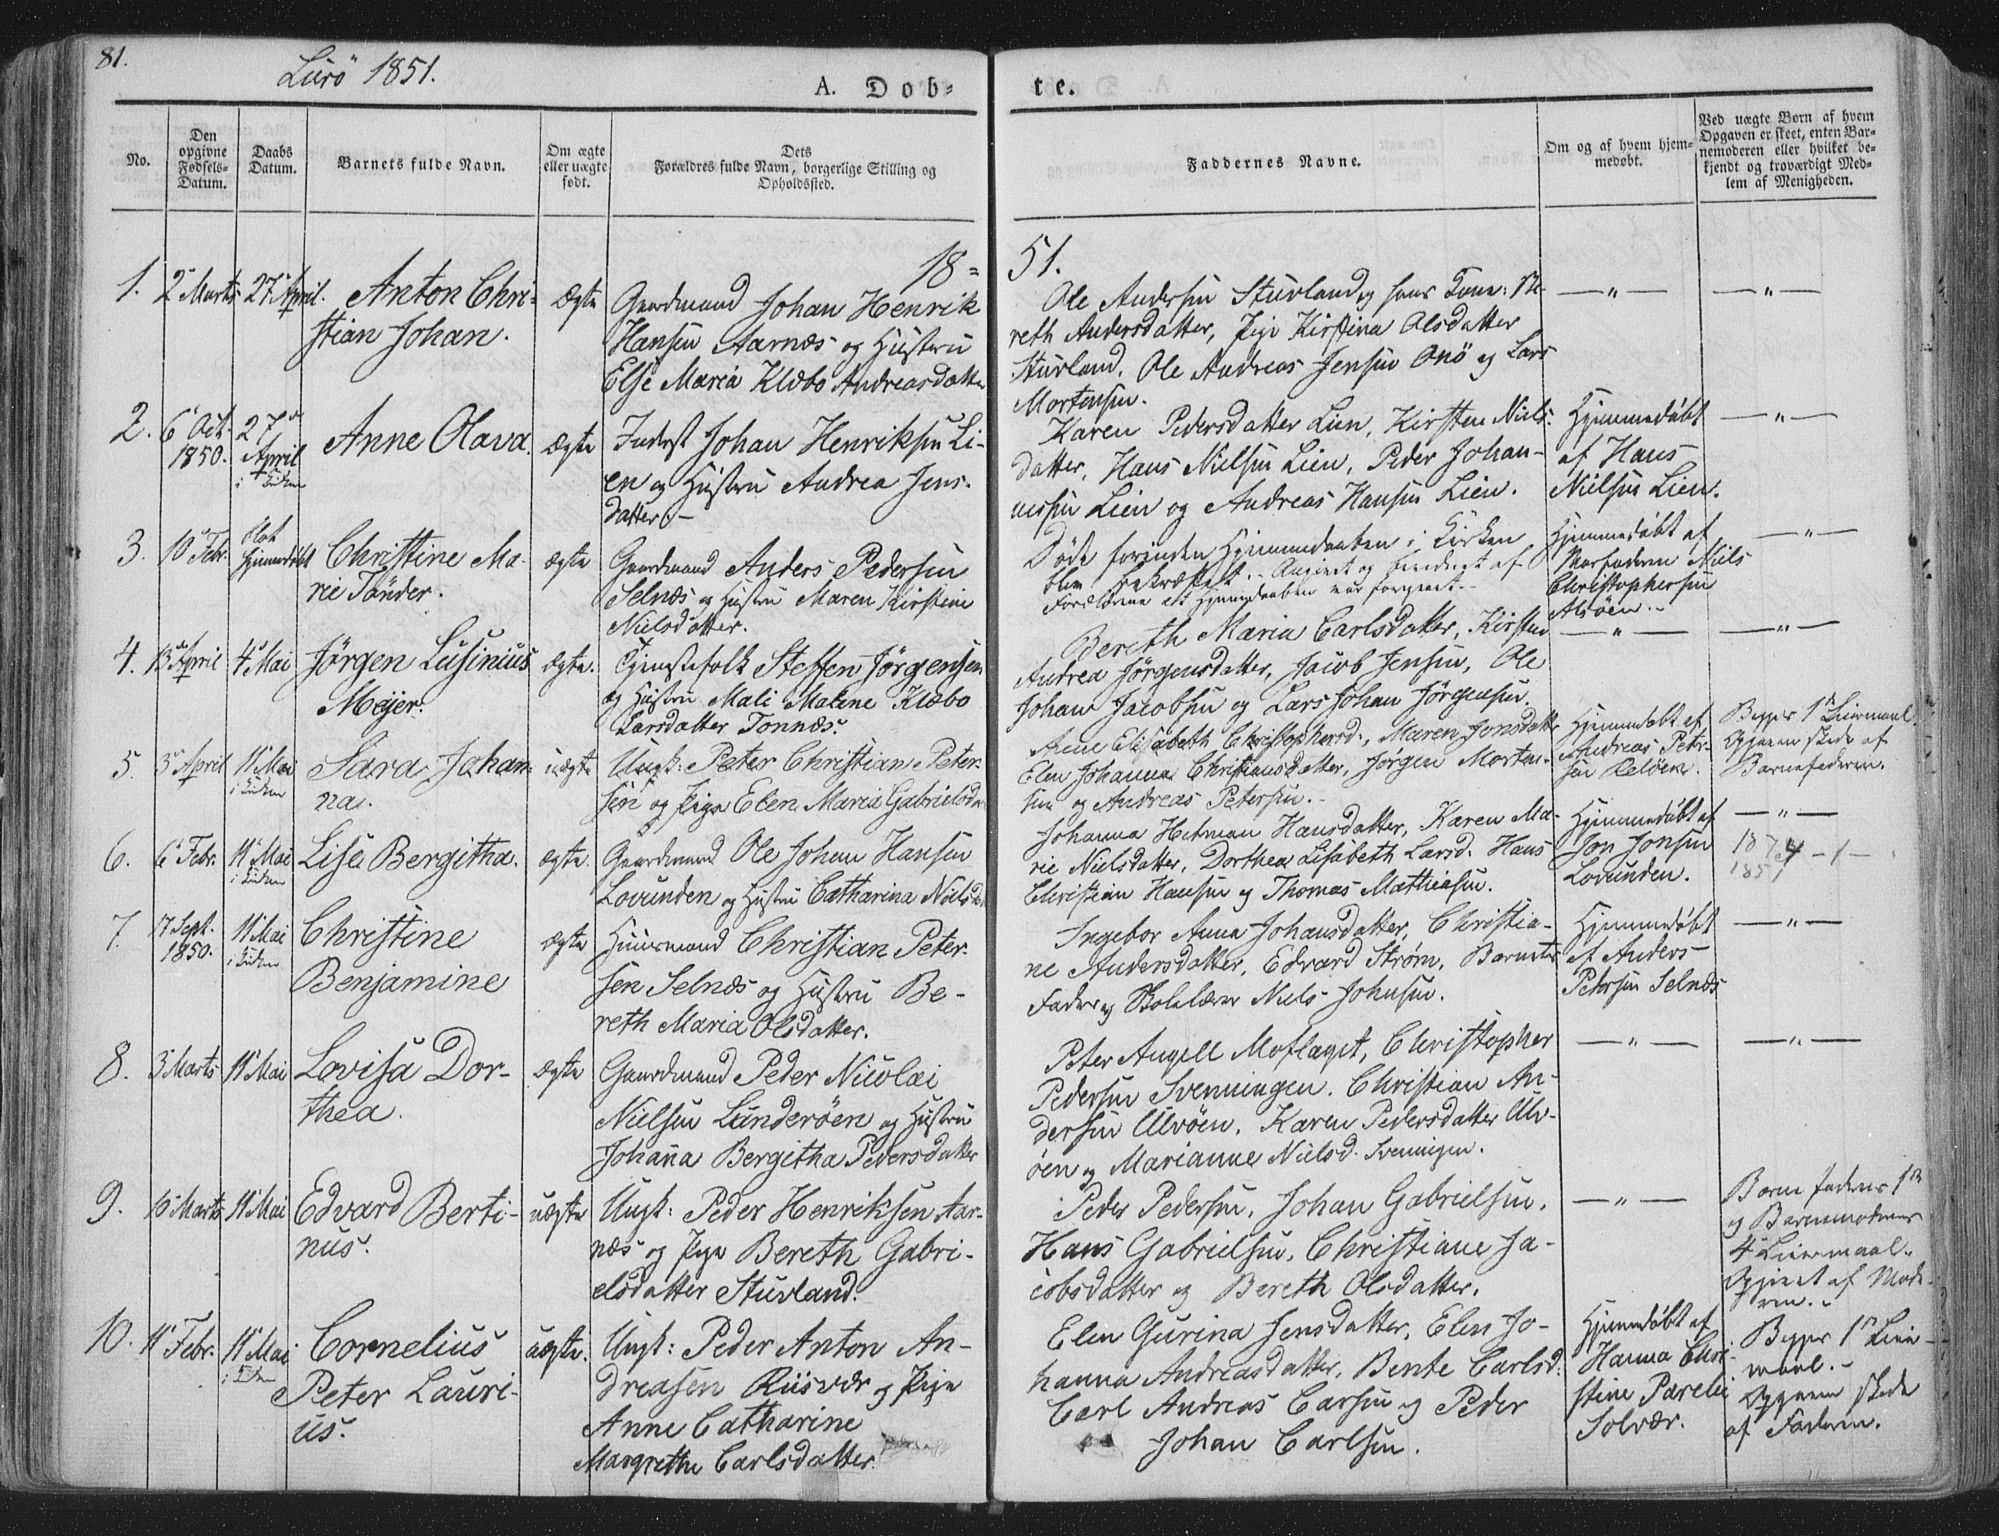 81.
Lurö 1851.
A. Dob-
te.
No.
Den opgivne Fødsels-Datum.
Daabs Datum.
Barnets fulde Navn.
Om ægte eller uægte født.
Dets Forældres fulde Navn, borgerlige Stilling og Opholdssted.
Faddernes Navne.
Om og af hvem hjemmedøbt.
Ved uægte Børn af hvem Opgaven er skeet, enten Barnemoderen eller hvilket bekjendt og troværdigt Medlem af Menigheden.
18=
51.
1. 2 Marts 27 April. Anton Chri-
stian Johan.
Ægte
Gaardmand Johan Henrik
Hansen Aarnæs og Hustru
Else Maria Klæbo Andreasdatter
Ole Andersen Stuvland og hans Kone: Be-
reth Andersdatter, Pige Kirstina Olsdatter
Stuvland, Ole Andreas Jensen Onö og Lars
Mortensen.
— „ —
— „ —
2. 6 Oct. 1850. 27 April i Kirken
Anne Olava.
ægte
Inderst Johan Henriksen Li-
en og Hustru Andrea Jens-
datter. –
Karen Pedersdatter Lien, Kirsten Niels-
datter, Hans Nielsen Lien, Peder Johan-
nessen Lien og Andreas Hansen Lien.
Hjemmedøbt
af Hans
Nielsen Lien.
— „ —
3. 10 Febr. blot Hjemmedøbt
Christine Ma-
rie Tönder.
ægte
Gaardmand Anders Pedersen
Selnæs og Hustru Maren Kirstine
Nielsdatter.
Døde forinden Hjemmedaaben i Kirken
blev bekræftet. Angivet og bevidnet af
Forældrene at Hjemmedaaben var foregaaet. –
Hjemmedøbt af
Morfaderen Niels
Christophersen
— „ —
4. 13 April 4 Mai
Jørgen Lusinius
Mejer.
ægte.
Tjenestefolk Steffen Jørgensen
og Hustru Mali Malene Klæbo
Larsdatter Tonnæs.
Bereth Maria Carlsdatter, Kirsten
Andrea Jørgensdatter, Jacob Jensen, Ole
Johan Jacobsen og Lars Johan Jørgensen.
— „ —
— „ —
5. 3 April 11 Mai i Kirken
Sara Johan-
na.
uægte
Ungk: Peter Christian Peter-
sen og Pige Elen Maria Gabrielsda
Anne Elisabeth Christophersd., Maren Jonsdatter
Elen Johanna Christiansdatter, Jørgen Morten-
sen og Andreas Petersen. –
Hjemmedøbt af
Andreas Peter-
sen
Begges 1ste Leiermaal.
Opgaven skede af
Barnefaderen.
6. 6 Febr. 11 Mai i Kirken
Lise Bergitha.
ægte.
Gaardmand Ole Johan Hansen
Lovunden og Hustru Catharina Nielsd
Johanna Hetman Hansdatter, Karen Ma-
rie Nielsdatter, Dorthea Lisabeth Larsd. Hans
Christian Hansen og Thomas Mathiasen.
Hjemmedøbt af
Jon Jonsen
Lovunden.
— „ —
7. 17 Sept. 1850. 11 Mai i Kirken
Christine
Benjamine
ægte
Huusmand Christian Peter-
sen Selnæs og Hustru Be-
reth Maria Olsdatter.
Ingebor Anna Johansdatter, Christia-
ne Andersdatter, Edvard Strøm, Barnets
Fader og Skolelærer Niels Johnsen.
Hjemmedøbt
af Anders
Petersen Selnæs
— „ —
8. 3 Marts 11 Mai
Lovisa Dor-
thea.
ægte
Gaardmand Peder Nicolai
Nielsen Lunderöen og Hustru
Johanna Bergitha Pedersdatter
Peter Angell Moflaget, Christopher
Pedersen Svenningen, Christian An-
dersen Ulvöen, Karen Pedersdatter Ulv-
öen og Marianne Nielsd. Svenningen.
— „ —
— „ —
9. 10 Marts 11 Mai
Edvard Berti-
nus.
uægte
Ungk: Peder Henriksen Aar-
næs og Pige Bereth Gabri-
elsdatter Stuvland.
Peder Pedersen, Johan Gabrielsen,
Hans Gabrielsen, Christiane Ja-
cobsdatter og Bereth Olsdatter.
— „ —
Barnefaderens 1ste
og Barnemoderens
4 Leiermaal.
Opgivet af Mode-
ren. –
10. 11 Febr. 11 Mai
Cornelius
Peter Lauri-
us.
uægte.
Ungk: Peder Anton An-
dreasen Riisvær og Pige
Anne Catharine
Margrethe Carlsdatter.
Elen Gurina Jensdatter, Elen Jo-
hanna Andreasdatter, Bente Carlsd.
Carl Andreas Carsen og Peder
Johan Carlsen.
Hjemmedøbt af
Hanna Chri-
stine Parelii
Solvær.
Begges 1ste Leier-
maal. –
Opgaven skede
af Faderen.